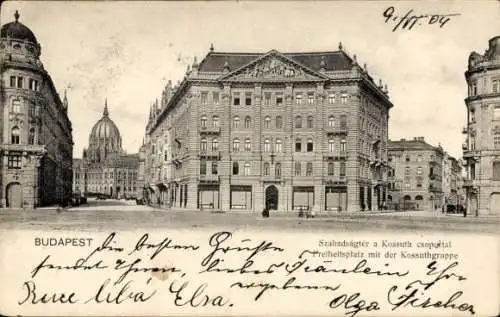 9./VI 04
BUDAPEST
Szabadságtér a Kossuth csoporttal
Freiheitsplatz mit der Kossuthgruppe
Die besten Grüsse
sendet Ihnen, liebes Fräulein Ihr
ergebener
Elsa. Olga Fischer